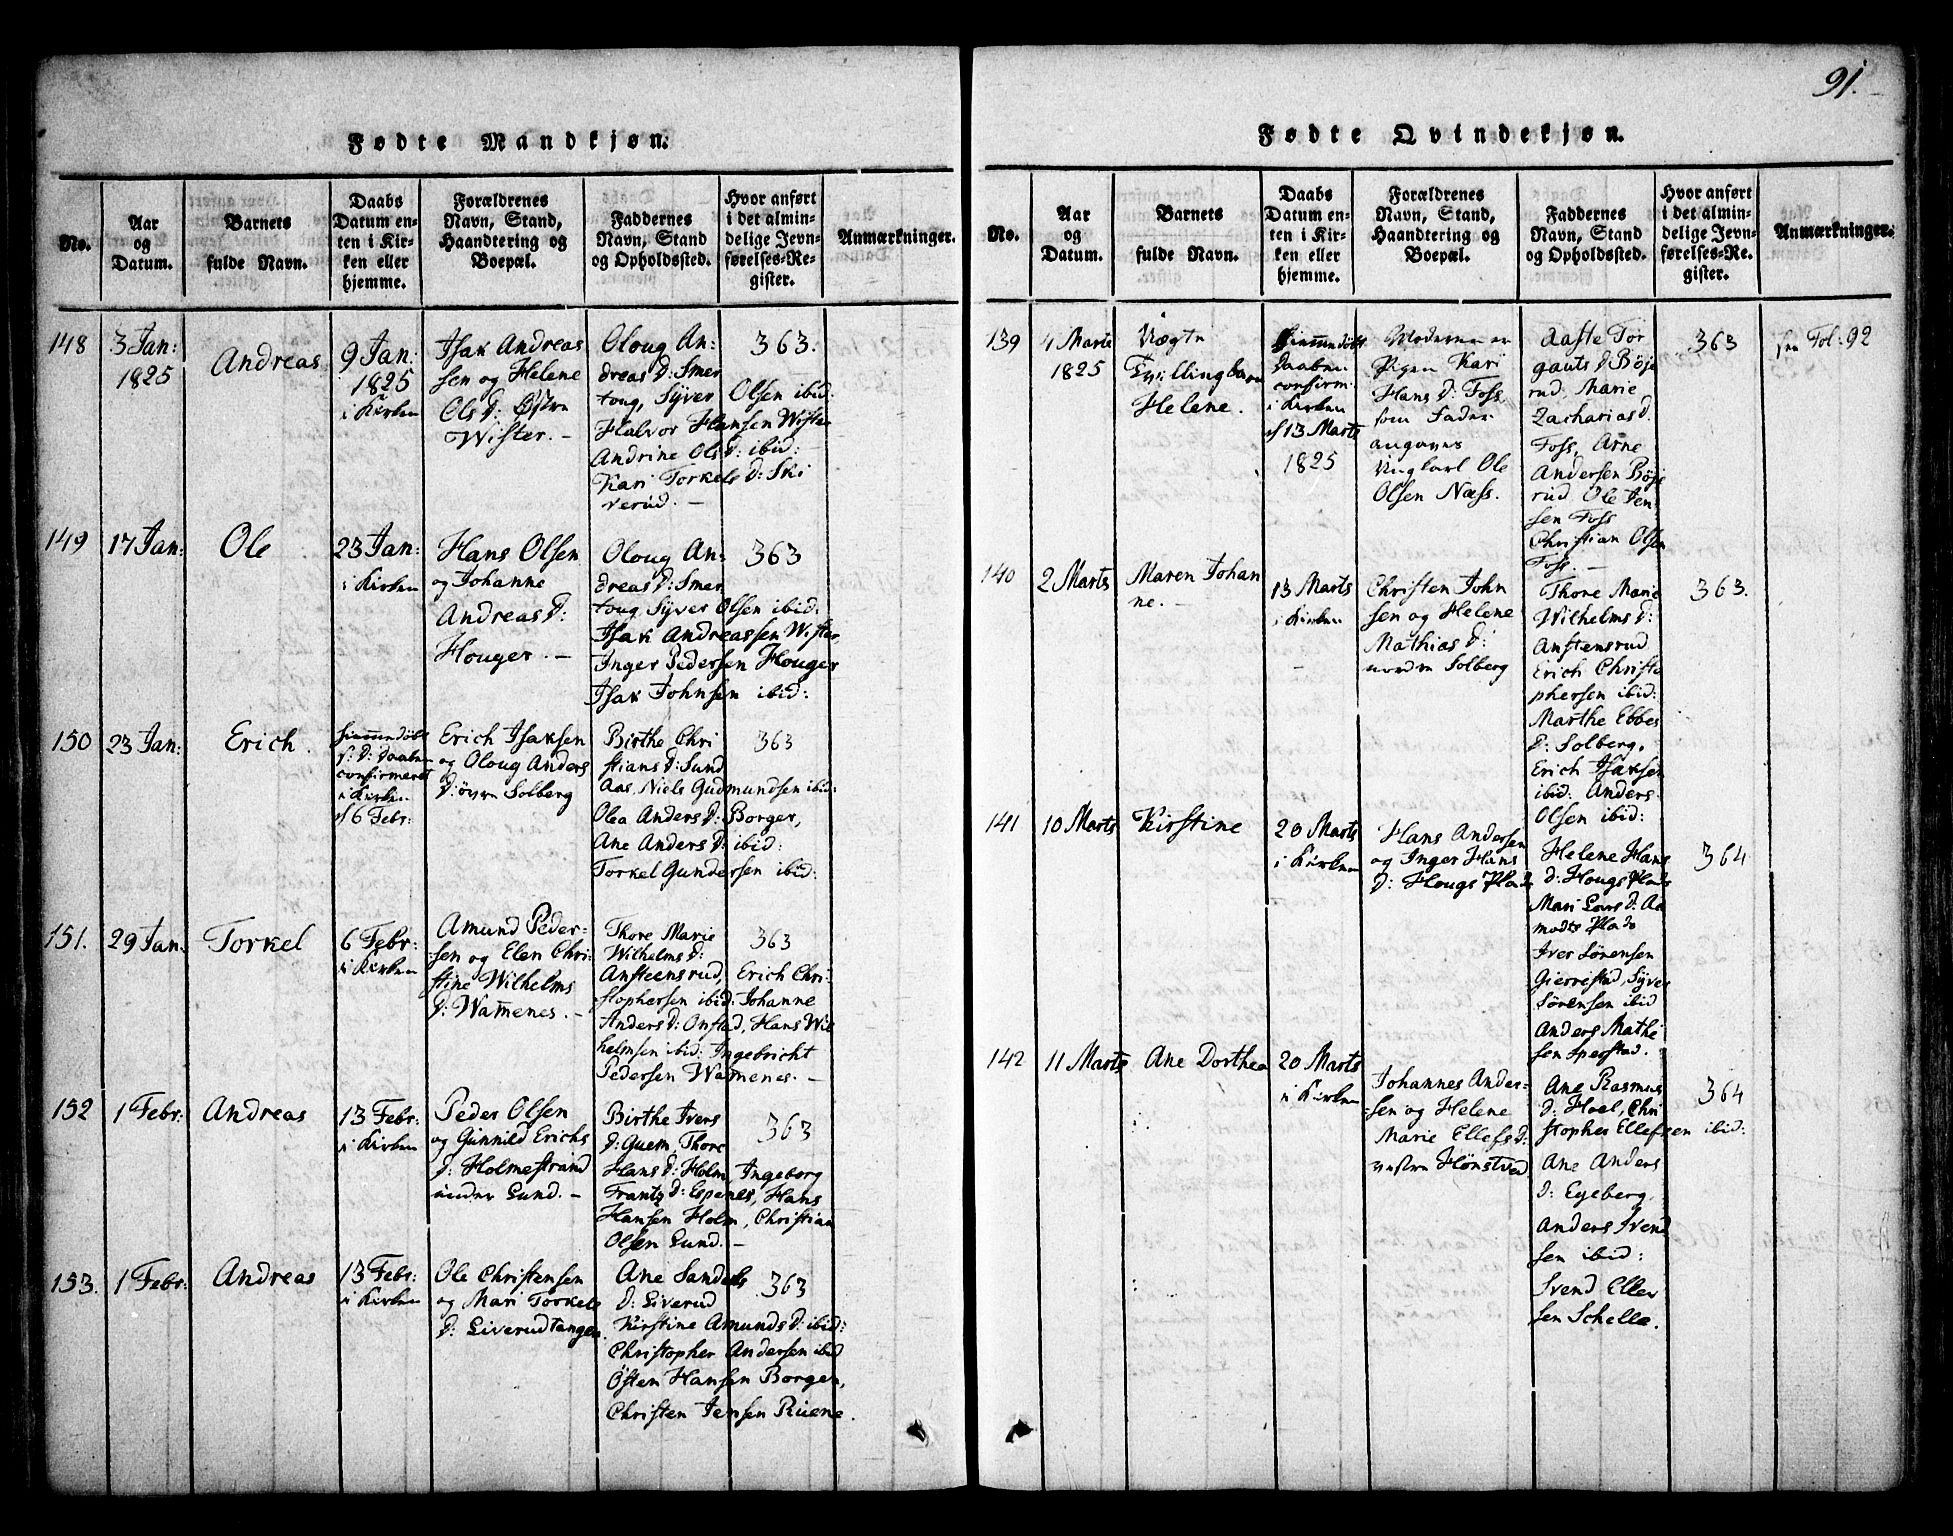 91.
Fødte Mandkjøn.
No.
Aar
og
Datum.
Barnets
fulde Navn.
Daabs
Datum en-
ten i Kir-
ken eller
hjemme.
Forældrenes
Navn, Stand,
Haandtering og
Boepæl.
Faddernes
Navn, Stand
og Opholdssted.
Hvor anført
i det almin-
delige Jevn-
førelses-Re-
gister.
Anmærkninger.
148
3 Jan:
1825
Andreas
9 Jan:
1825
i Kirken
Isak Andreas
sen og Helene
Ols D: Østre
Wister. –
Oloug An:
dreas D: Smer
toug, Syver Olsen ibid:
Halvor Hansen Wister
Andrine Ols D: ibid:
Kari Torkels D: Ski
verud. –
363.
149
17 Jan:
Ole
23 Jan:
i Kirken
Hans Olsen
og Johanne
Andreas D:
Houger. –
Oloug An:
dreas D: Smer
toug Syver Olsen ibid:
Isak Andreassen Wister
Inger Pedersen Houger
Isak Johnsen ibid:
363
150
23 Jan:
Erich.
hiemmedøbt
Daaben
confirmeret
i Kirken
d 6 Febr:
Erich Isaksen
og Oloug Anders
D: øvre Solberg
Birthe Chri
stians D: Sund
Aas, Niels Gudmundsen ibid:
Olea Anders D: Borger,
Ane Anders D: ibid:
Torkel Gundersen ibid:
363
151.
29 Jan:
Torkel
6 Febr:
i Kirken
Amund Peder-
sen og Elen Chri-
stine Wilhelms
D: Wamenes. –
Thore Marie
Wilhelms D:
Ansteensrud, Erich Chri:
stophersen ibid: Johanne
Anders D: Onstad, Hans Wil
helmsen ibid: Ingebricht
Pedersen Wamenes. –
363
152
1 Febr:
Andreas
13 Febr:
i Kirken
Peder Olsen
og Gunnild Erichs
D: Holmestrand
under Lund. –
Birthe Ivers
D: Quem, Thore
Hans D: Holm, Ingeborg
Frants D: Espenes, Hans
Hansen Holm, Christian
Olsen Lund. –
363
153.
1 Febr:
Andreas
13 Febr:
i Kirken
Ole Christensen
og Mari Torkels
D: Liverudtangen.
Ane Sandels
D: Liverud
Kirstine Amunds D: ibid:
Christopher Andersen ibid
Østen Hansen Borgen,
Christen Jensen Ruene.
363
Fødte Qvindekjøn.
No.
Aar
og
Datum.
Barnets
fulde Navn.
Daabs
Datum en-
ten i Kir-
ken eller
hjemme.
Forældrenes
Navn, Stand,
Haandtering og
Boepæl.
Faddernes
Navn, Stand
og Opholdssted.
Hvor anført
i det almin-
delige Jevn-
førelses-Re-
gister.
Anmærkninger.
139
4 Marts
1825
Uægte
Tvillingbarn
Helene.
hiemmedøbt
Daaben
confirm:
i Kirken
d 13 Marts
1825
Moderen er
Pigen Kari
Hans D: Foss
som Fader
angaves
Ungkarl Ole
Olsen Næss.
Aaste Tor
gauts D: Böje
rud, Marie
Zacharias D.
Foss, Arne
Andersen Böje
rud Ole Jen-
sen Foss
Christian Olsen
Foss. –
363
see Fol: 92
140
2 Marts
Maren Johan
ne. –
13 Marts
i Kirken
Christen John
sen og Helene
Mathias D:
nordre Solberg
Thore Marie
Wilhelms D:
Anstensrud
Erich Christo
phersen ibid:
Marthe Ebbes
D: Solberg,
Erich Isaksen
ibid: Anders
Olsen ibid:
363.
141
10 Marts
Kirstine
20 Marts
i Kirken
Hans Andersen
og Inger Hans
D: Hougs Plads
Helene Hans
D: Hougs Plads
Mari Lars D: Aa
mots Plads
Iver Sörensen
Gierrestad, Syver
Sörensen ibid
Anders Mathi
sen Sperstad.
364
142
11 Marts
Ane Dorthea
20 Marts
i Kirken
Johannes Ander-
sen og Helene
Marie Ellefs D:
vestre Hönstved
Ane Rasmus
D: Hoel, Chri
stopher Ellefsen ibid:
Ane Anders
D: Egeberg,
Anders Svend
sen ibid:
Svend Ellev
sen Schelle.
364